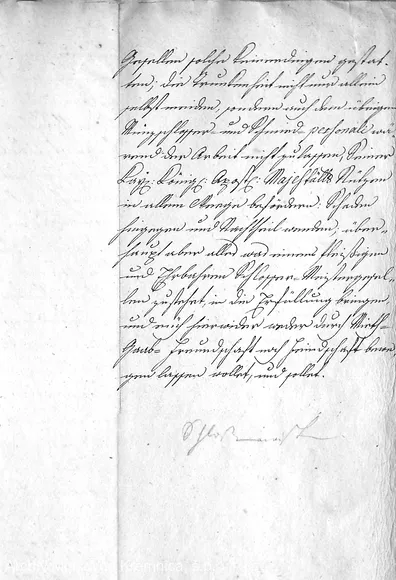 Gesellen solche keinerdingen gestat-
ten, die Trunkenheit nicht nur allein
selbst meiden, sondern auch dem übrigen
Münzschlosser- und Schmied-personale wä-
rend der Arbeit nicht zulassen, Seiner
Kay: König: Apost: Majestätts Nutzen
in allem Wege befördern, Schaden
hingegen und Nachtheil wenden, über-
haupt aber alles was einem fleißigen
und Ehrbahren Schlosser-Meistergesel-
len zustehet, in die Erfüllung bringen,
und euch hierwider weder durch Mieth-
Gaab- Freundschaft noch Feindschaft bewe-
gen lassen wollet, und sollet.